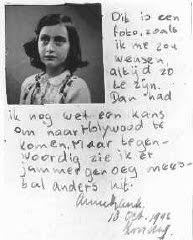 Dit is een
foto, zoals
ik me zou
wensen,
altijd zo
te zijn.
Dan had
ik nog wel een kans
om naar Holywood te
komen. Maar tegen-
woordig zie ik er
jammer genoeg mees-
tal anders uit.
Anne Frank.
10 Oct. 1942
Zondag